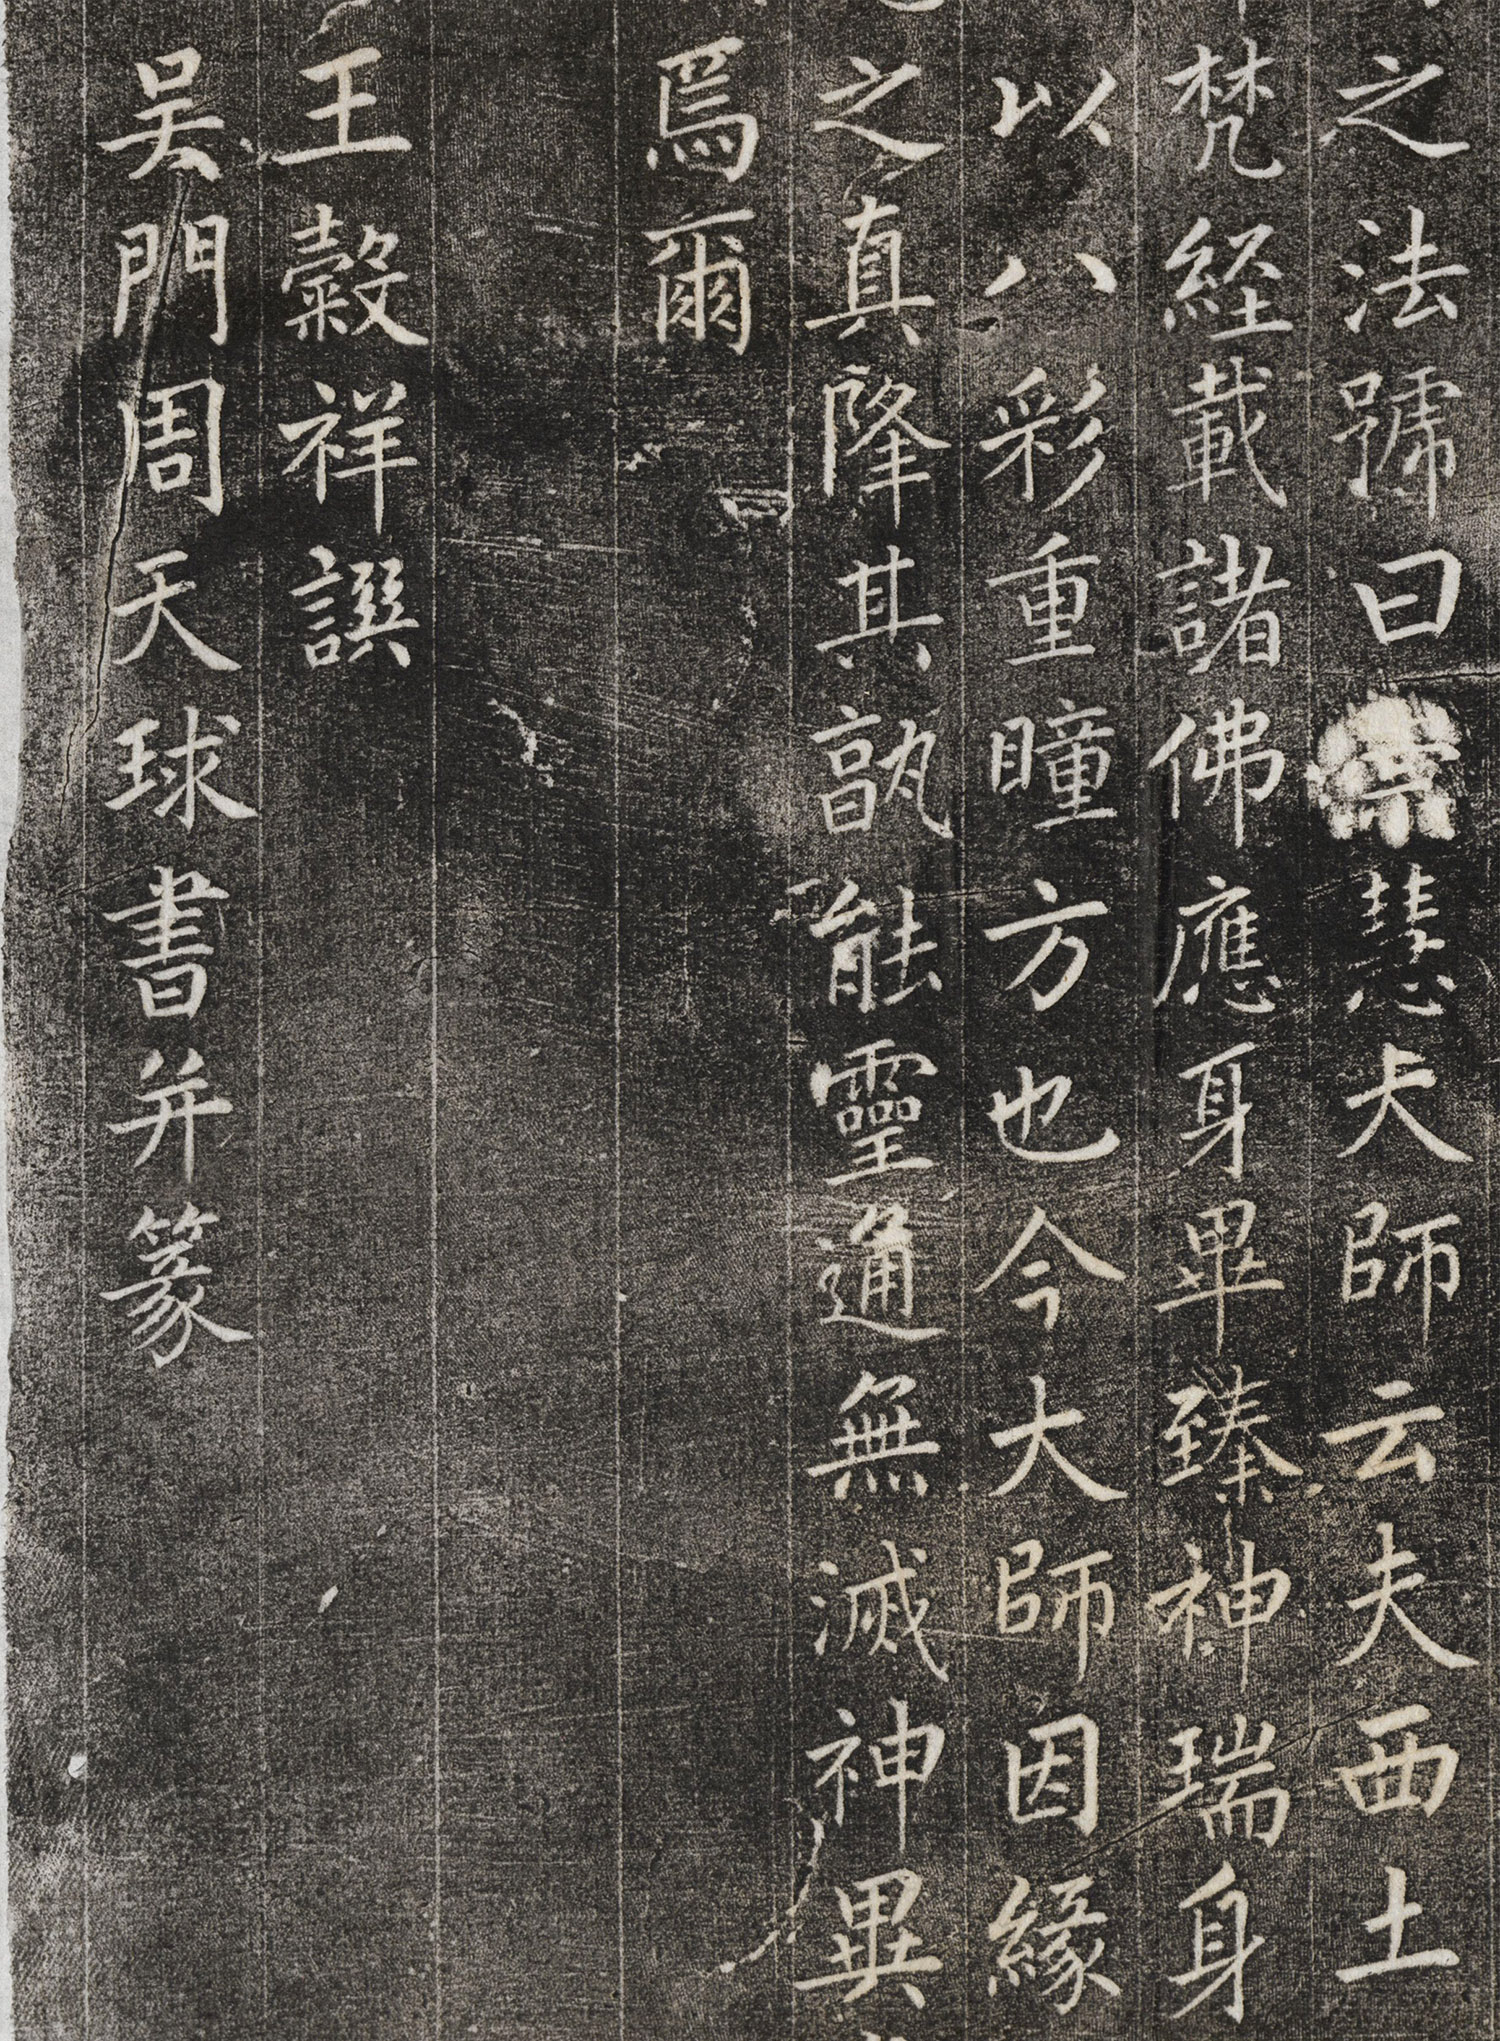 之法號曰崇慧夫師云夫西土
梵經載諸佛應身畢臻神瑞身
以八彩重瞳方也今大師因緣
之真隆其孰能靈通無滅神異
焉爾
王穀祥譔
吳門周天球書并篆